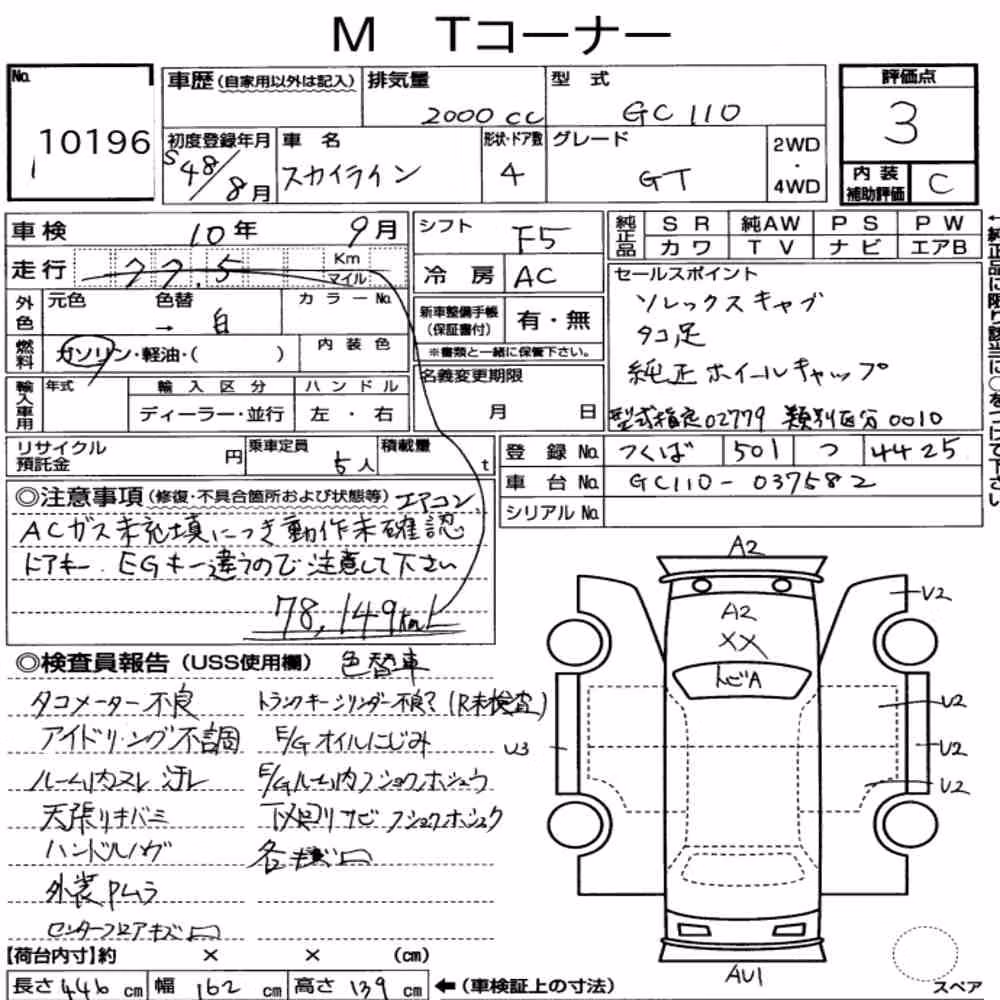 M Tコーナー
No. 10196
車歴(自家用以外は記入) 排気量 2000cc 型式 GC110
評価点 3
初度登録年月 S48/8月 車名 スカイライン 形状・ドア数 4 グレード GT 2WD・4WD
内装補助評価 C
車検 10年 9月 シフト F5
純正品 SR 純AW PS PW
カワ TV ナビ エアB
走行 77.5 Km マイル 冷房 AC
←純正品に限り該当に○をつけて下さい
外色 元色 色替 → 白 カラーNo.
新車整備手帳(保証書付) 有・無
※書類と一緒に保管下さい。
燃料 ガソリン・軽油・( ) 内装色
セールスポイント
ソレックスキャブ
タコ足
純正ホイールキャップ
型式指定02779 類別区分0010
輸入車用 年式 輸入区分 ハンドル
ディーラー・並行 左・右
名義変更期限 月 日
リサイクル預託金 円 乗車定員 5人 積載量 t
登録No. つくば 501 つ 4425
車台No. GC110-037582
シリアルNo.
◎注意事項(修復・不具合箇所および状態等) エアコン
ACガス未充填につき動作未確認
ドアキー、EGキー違うので注意して下さい
78,149km
◎検査員報告(USS使用欄) 色替車
タコメーター不良 トランクキーシリンダー不良?(R未検査)
アイドリング不調 E/Gオイルにじみ
ルーム内スレ 汚レ E/Gルーム内フショクホシュウ
天張リキバミ 下廻リサビ フショクホシュウ
ハンドルハゲ
外装Pムラ
センターフロアキズ
A2
A2
XX
トビA
U2
U2
U3
U2
U2
AU1
スペア
【荷台内寸】約 × × (cm)
長さ446cm 幅162cm 高さ139cm ←(車検証上の寸法)